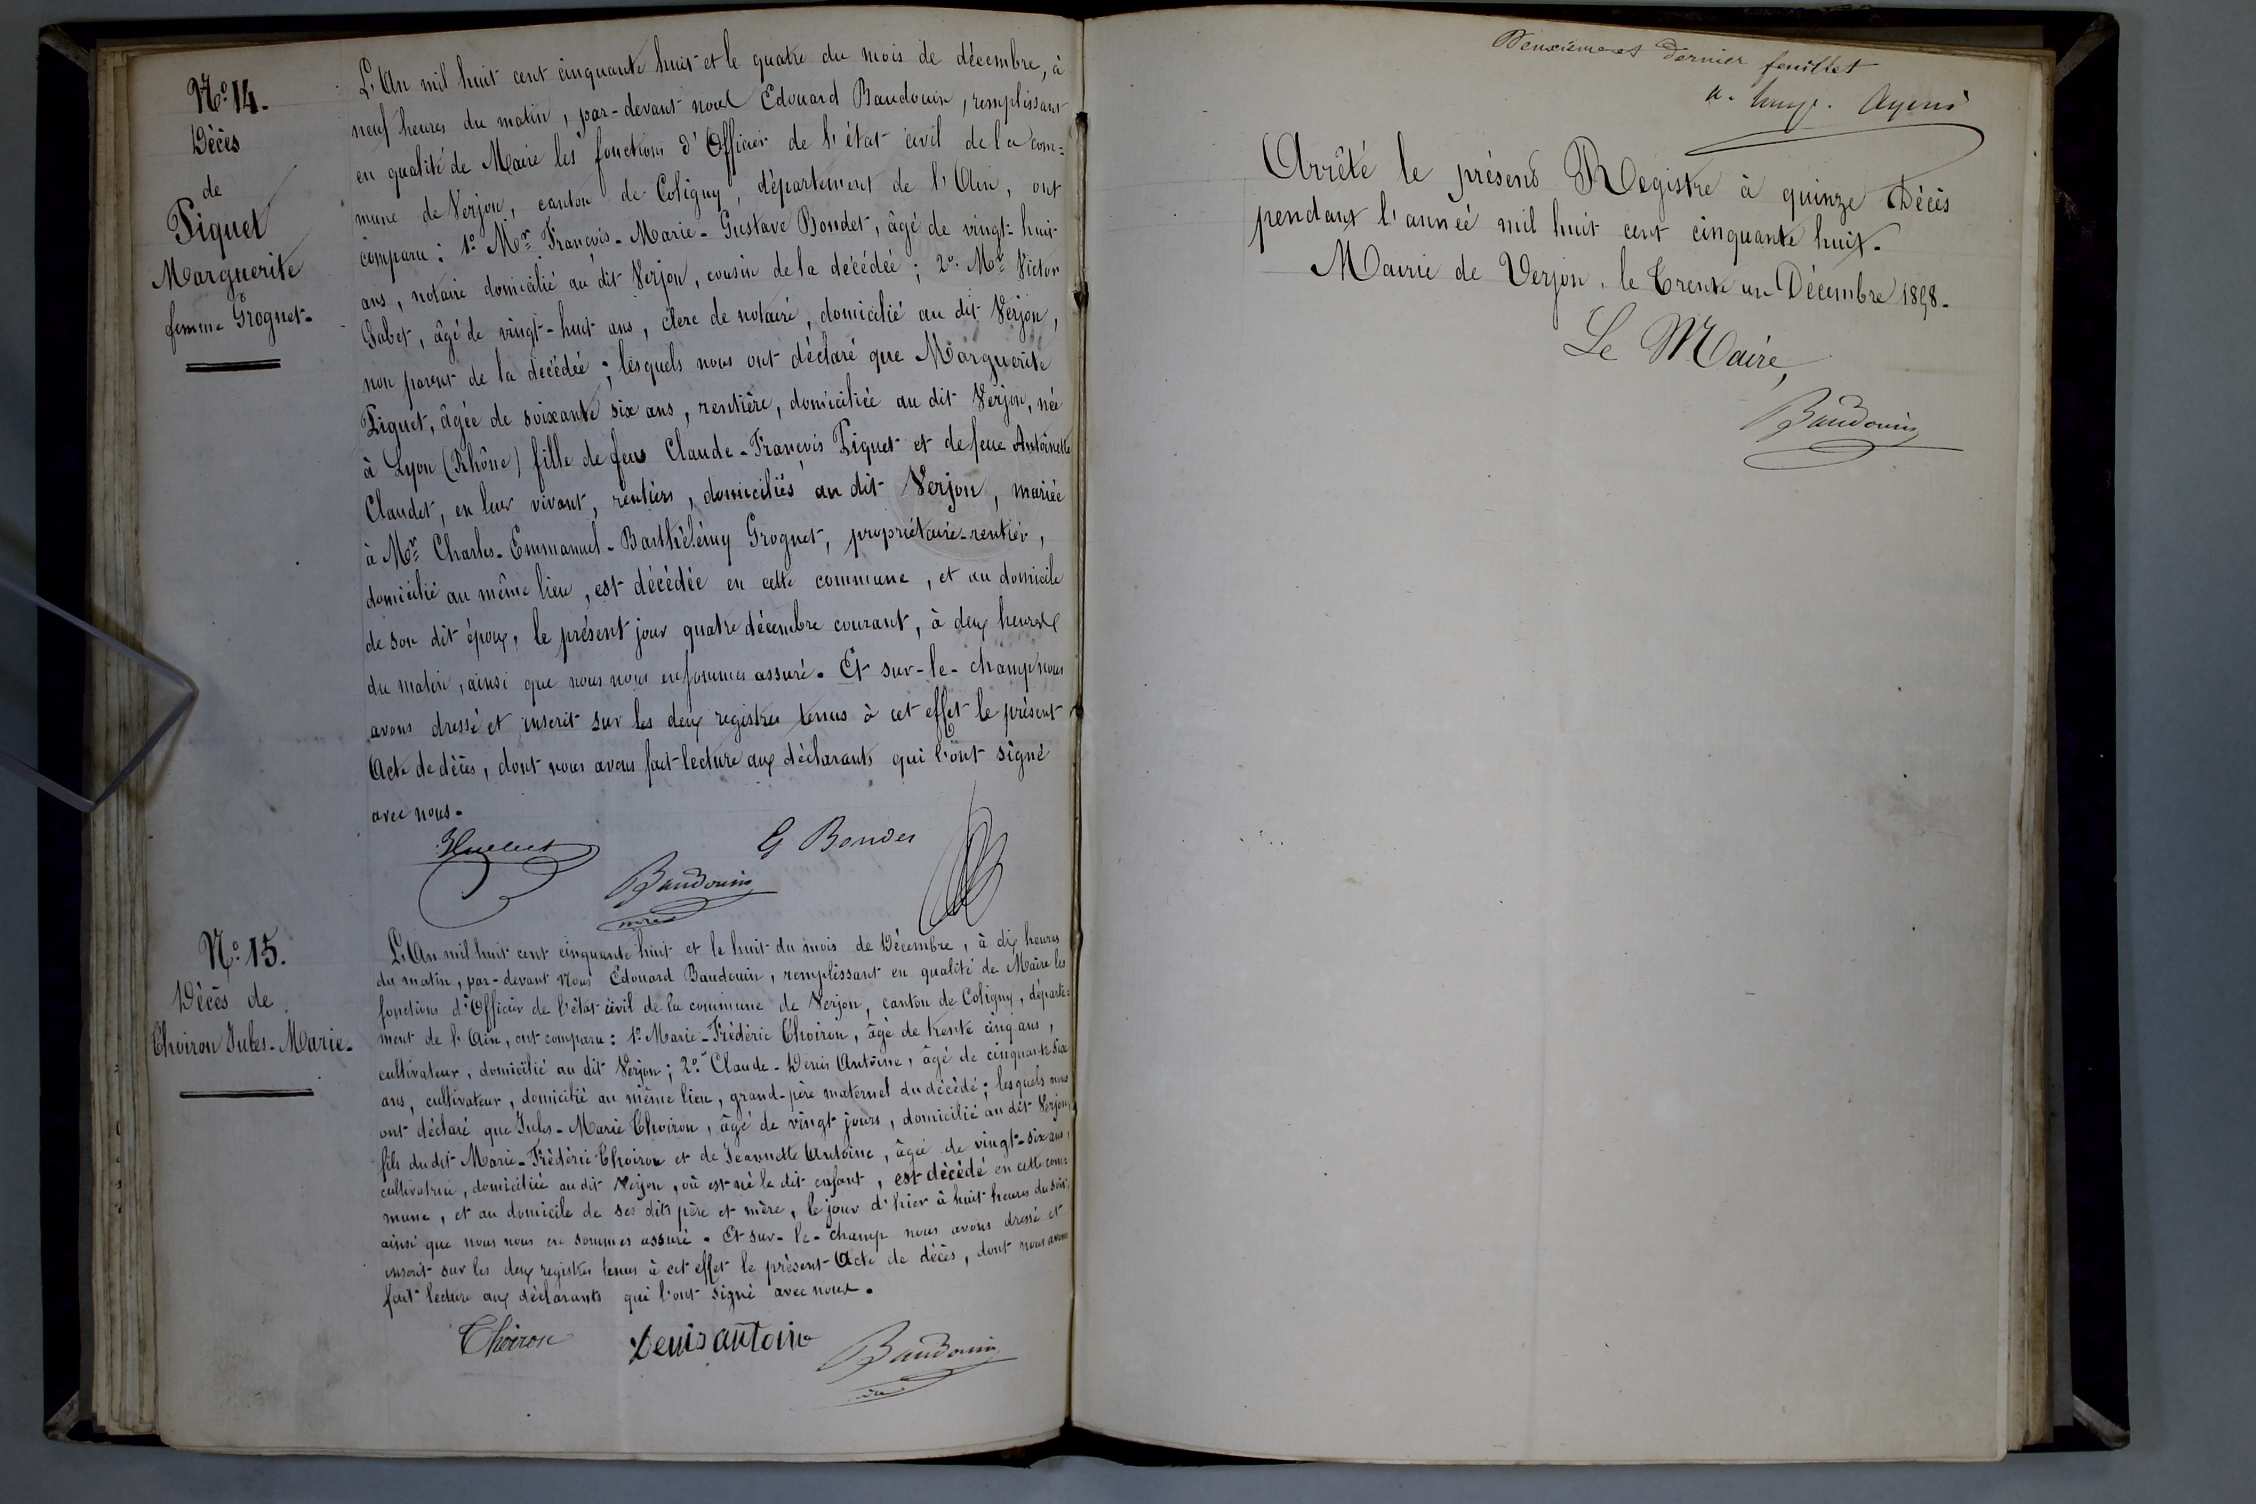 N.° 14.
Décès
de
Piquet
Marguerite
femme Grognet.
L'An mil huit cent cinquante huit et le quatre du mois de décembre, à
neuf heures du matin, par-devant nous Edouard Baudouin, remplissant
en qualité de Maire les fonctions d'Officier de l'état civil de la com=
mune de Verjon, canton de Coligny, département de l'Ain, ont
comparu: 1.° Mr François-Marie-Gustave Bondet, âgé de vingt-huit
ans, notaire domicilié au dit Verjon, cousin de la décédée; 2.° Mr Victor
âgé de vingt-huit ans, clerc de notaire, domicilié au dit Verjon,
non parent de la décédée; lesquels nous ont déclaré que Marguerite
Piquet, âgée de soixante six ans, rentière, domiciliée au dit Verjon, née
à Lyon (Rhône) fille de feus Claude-François Piquet et de feue Antoinette
Claudet, en leur vivant, rentiers, domiciliés au dit Verjon, mariée
à Mr Charles-Emmanuel-Barthélémy Grognet, propriétaire-rentier,
domicilié au même lieu, est décédée en cette commune, et au domicile
de son dit époux, le présent jour quatre décembre courant, à deux heures
du matin, ainsi que nous nous en sommes assuré. Et sur-le-champ nous
avons dressé et inscrit sur les deux registres tenus à cet effet le présent
Acte de décès, dont nous avons fait lecture aux déclarants qui l'ont signé
avec nous.
G Bondet
Baudouin
N.° 15.
Décès de
Thoiron Jules-Marie.
L'An mil huit cent cinquante huit et le huit du mois de Décembre, à dix heures
du matin, par-devant Nous Edouard Baudouin, remplissant en qualité de Maire les
fonctions d'Officier de l'état civil de la commune de Verjon, canton de Coligny, départe=
ment de l'Ain, ont comparu: 1.° Marie-Frédéric Thoiron, âgé de trente cinq ans,
cultivateur, domicilié au dit Verjon; 2.° Claude-Denis Antoine, âgé de cinquante six
ans, cultivateur, domicilié au même lieu, grand-père maternel du décédé; lesquels nous
ont déclaré que Jules-Marie Thoiron, âgé de vingt jours, domicilié au dit Verjon,
fils du dit Marie-Frédéric Thoiron et de Jeannette Antoine, âgée de vingt-six ans,
cultivatrice, domiciliée au dit Verjon, où est né le dit enfant, est décédé en cette com=
mune, et au domicile de ses dits père et mère, le jour d'hier à huit heures du soir,
ainsi que nous nous en sommes assuré. Et sur-le-champ nous avons dressé et
inscrit sur les deux registres tenus à cet effet le présent Acte de décès, dont nous avons
fait lecture aux déclarants qui l'ont signé avec nous.
Thoiron
Denis antoine
Baudouin
Deuxième et dernier feuillet
Arrêté le présent Registre à quinze Décès
pendant l'année mil huit cent cinquante huit.
Mairie de Verjon, le Trente un Décembre 1858.
Le Maire,
Baudouin